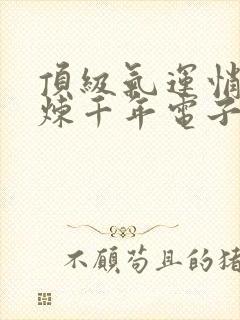 頂級氣運悄
煉千年電子
不願苟且的猪